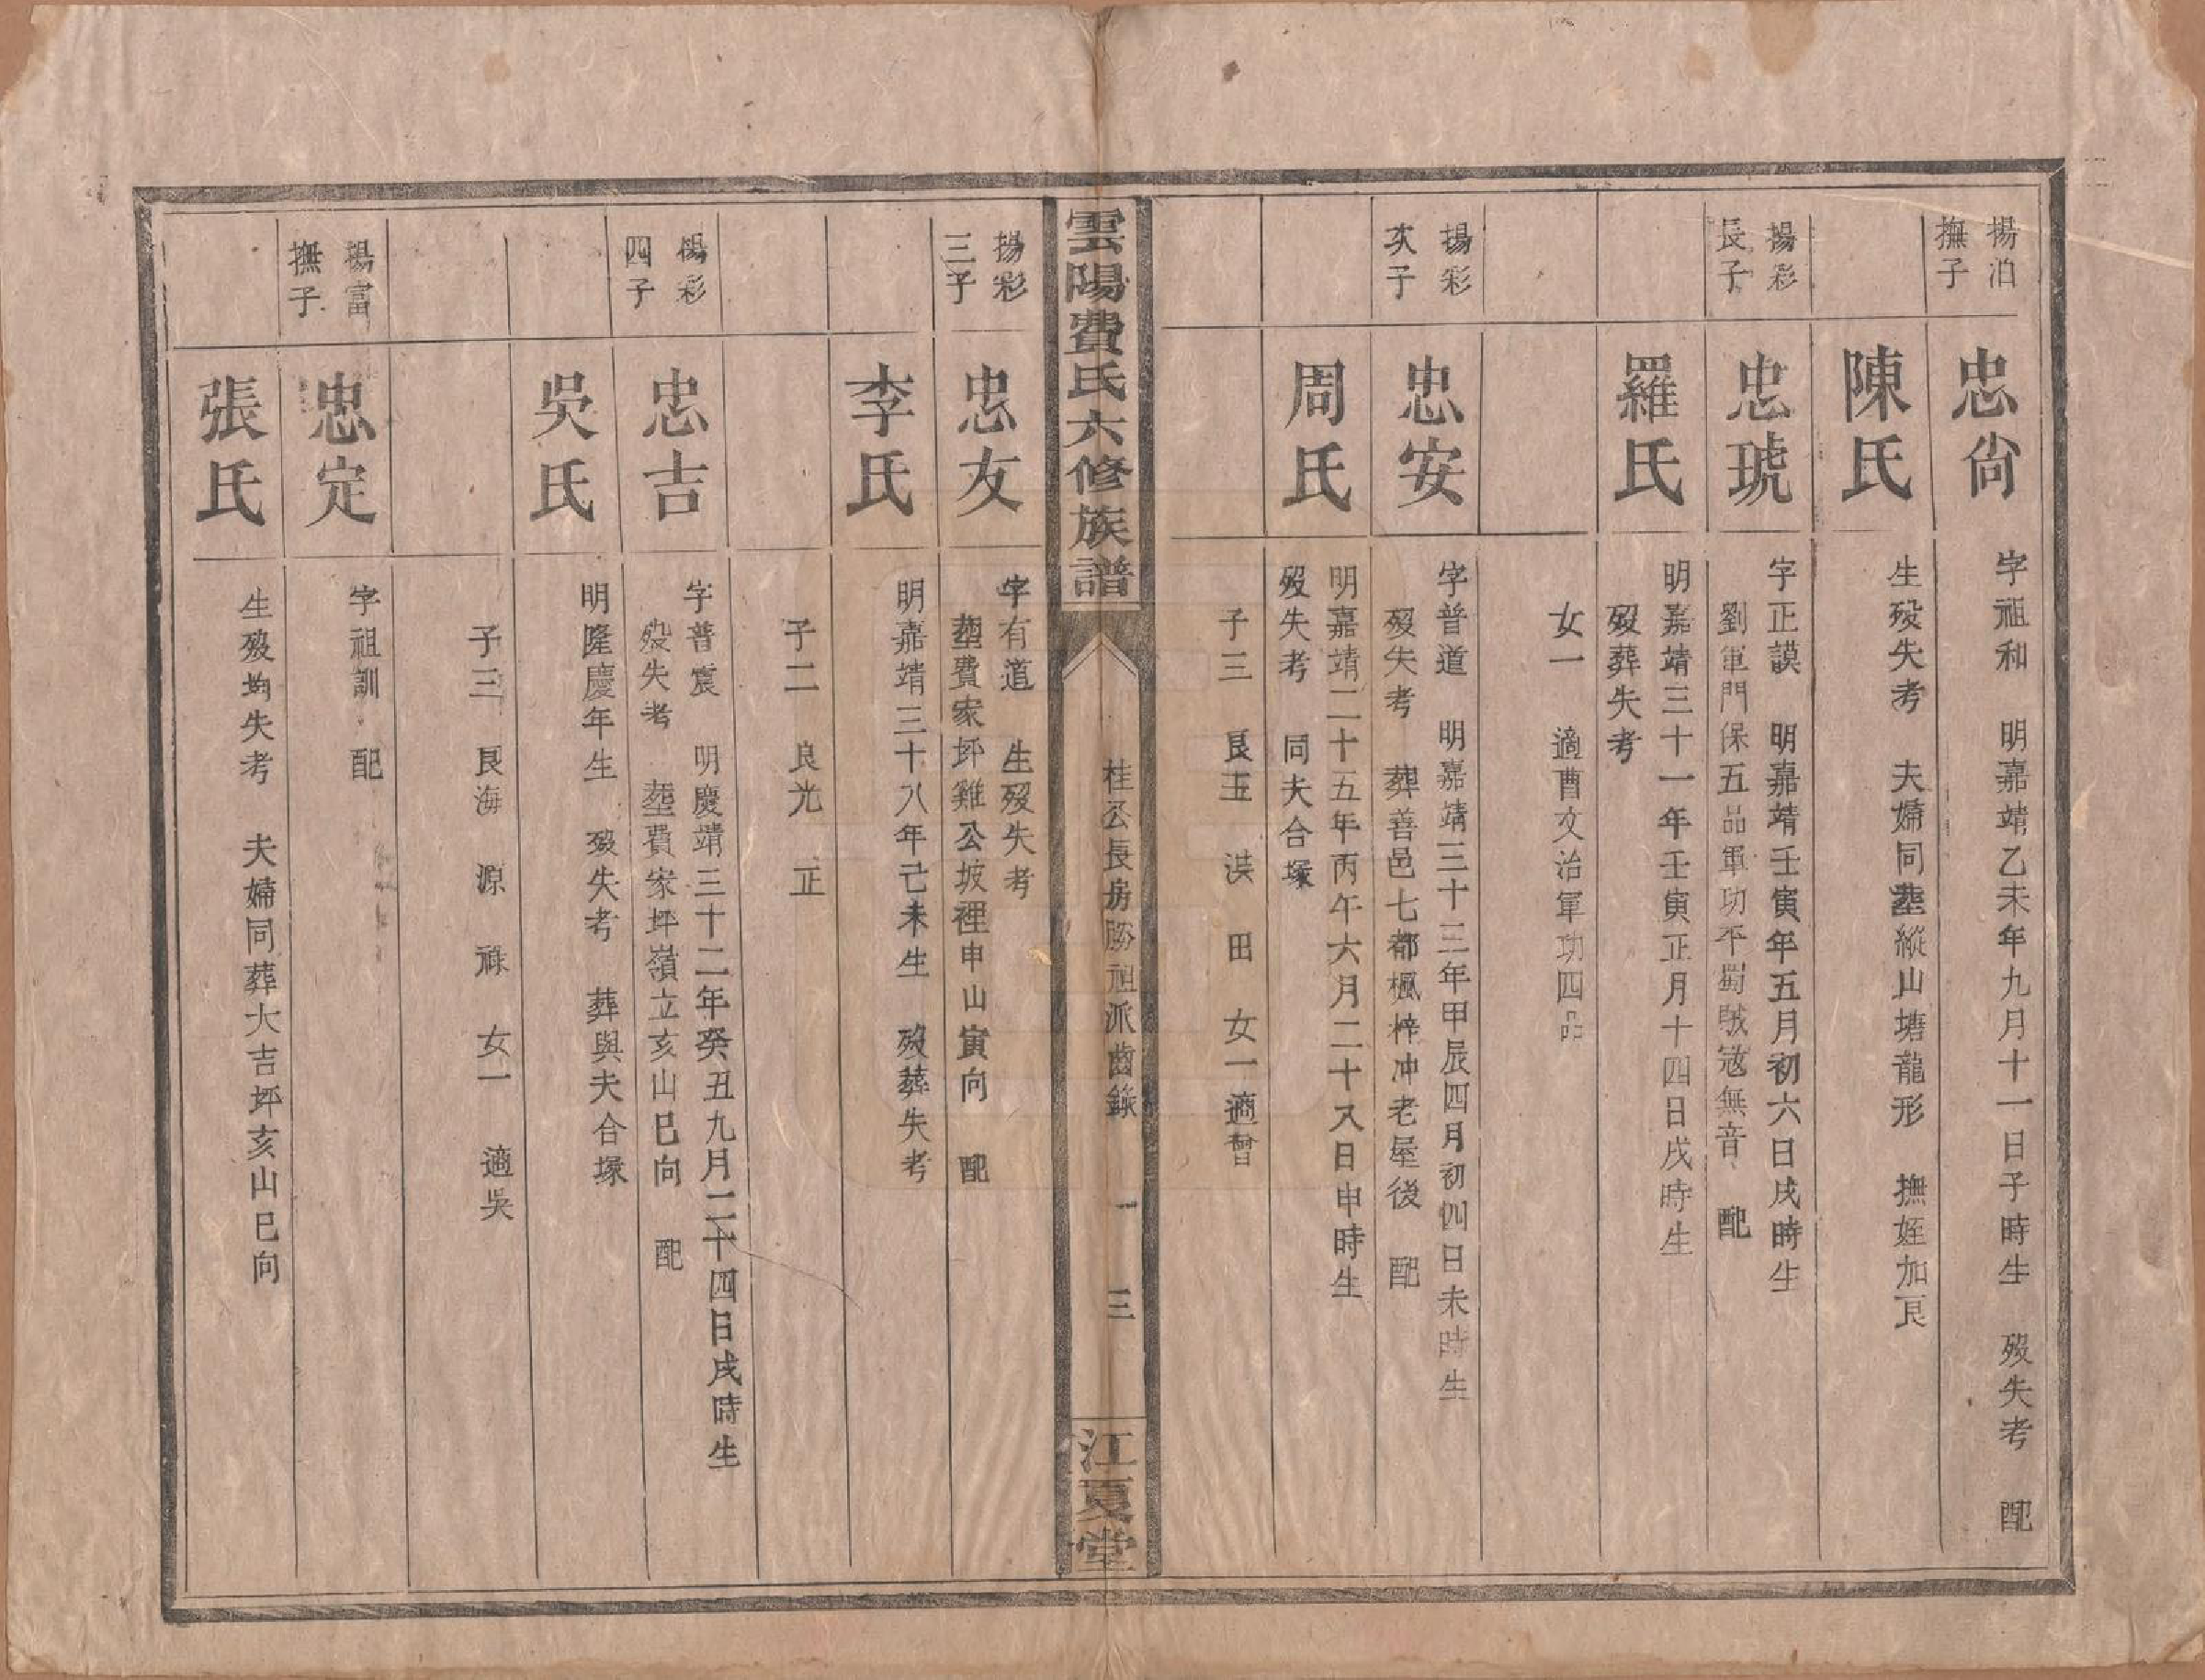 揚泊
撫子
忠尙
字祖和　明嘉靖乙未年九月十一日子時生　歿失考　配
陳氏
生歿失考　夫婦同塟縱山塘龍形　撫姪加艮
揚彩
長子
忠琥
字正謨　明嘉靖壬寅年五月初六日戌時生
劉軍門保五品軍功平蜀賊寇無音　配
羅氏
明嘉靖三十一年壬寅正月十四日戌時生
歿葬失考
女一　適曹文治軍功四品
揚彩
次子
忠安
字普道　明嘉靖三十三年甲辰四月初四日未時生
歿失考　葬善邑七都楓梓冲老屋後　配
周氏
明嘉靖二十五年丙午六月二十八日申時生
歿失考　同夫合塚
子三　艮玉　洪　田　女一適曾
雲陽費氏六修族譜
桂公長房勝祖派齒錄　一　三
江夏堂
揚彩
三子
忠友
字有道　生歿失考
塟費家坪雞公坡裡申山寅向　配
李氏
明嘉靖三十八年己未生　歿葬失考
子二　良光　正
楊彩
四子
忠吉
字普震　明慶靖三十二年癸丑九月二十四日戌時生
歿失考　塟費家坪嶺立亥山巳向　配
吳氏
明隆慶年生　歿失考　葬與夫合塚
子三　艮海　源　祿　女一　適吳
楊富
撫子
忠定
字祖訓　配
張氏
生歿均失考　夫婦同葬大吉坪亥山巳向